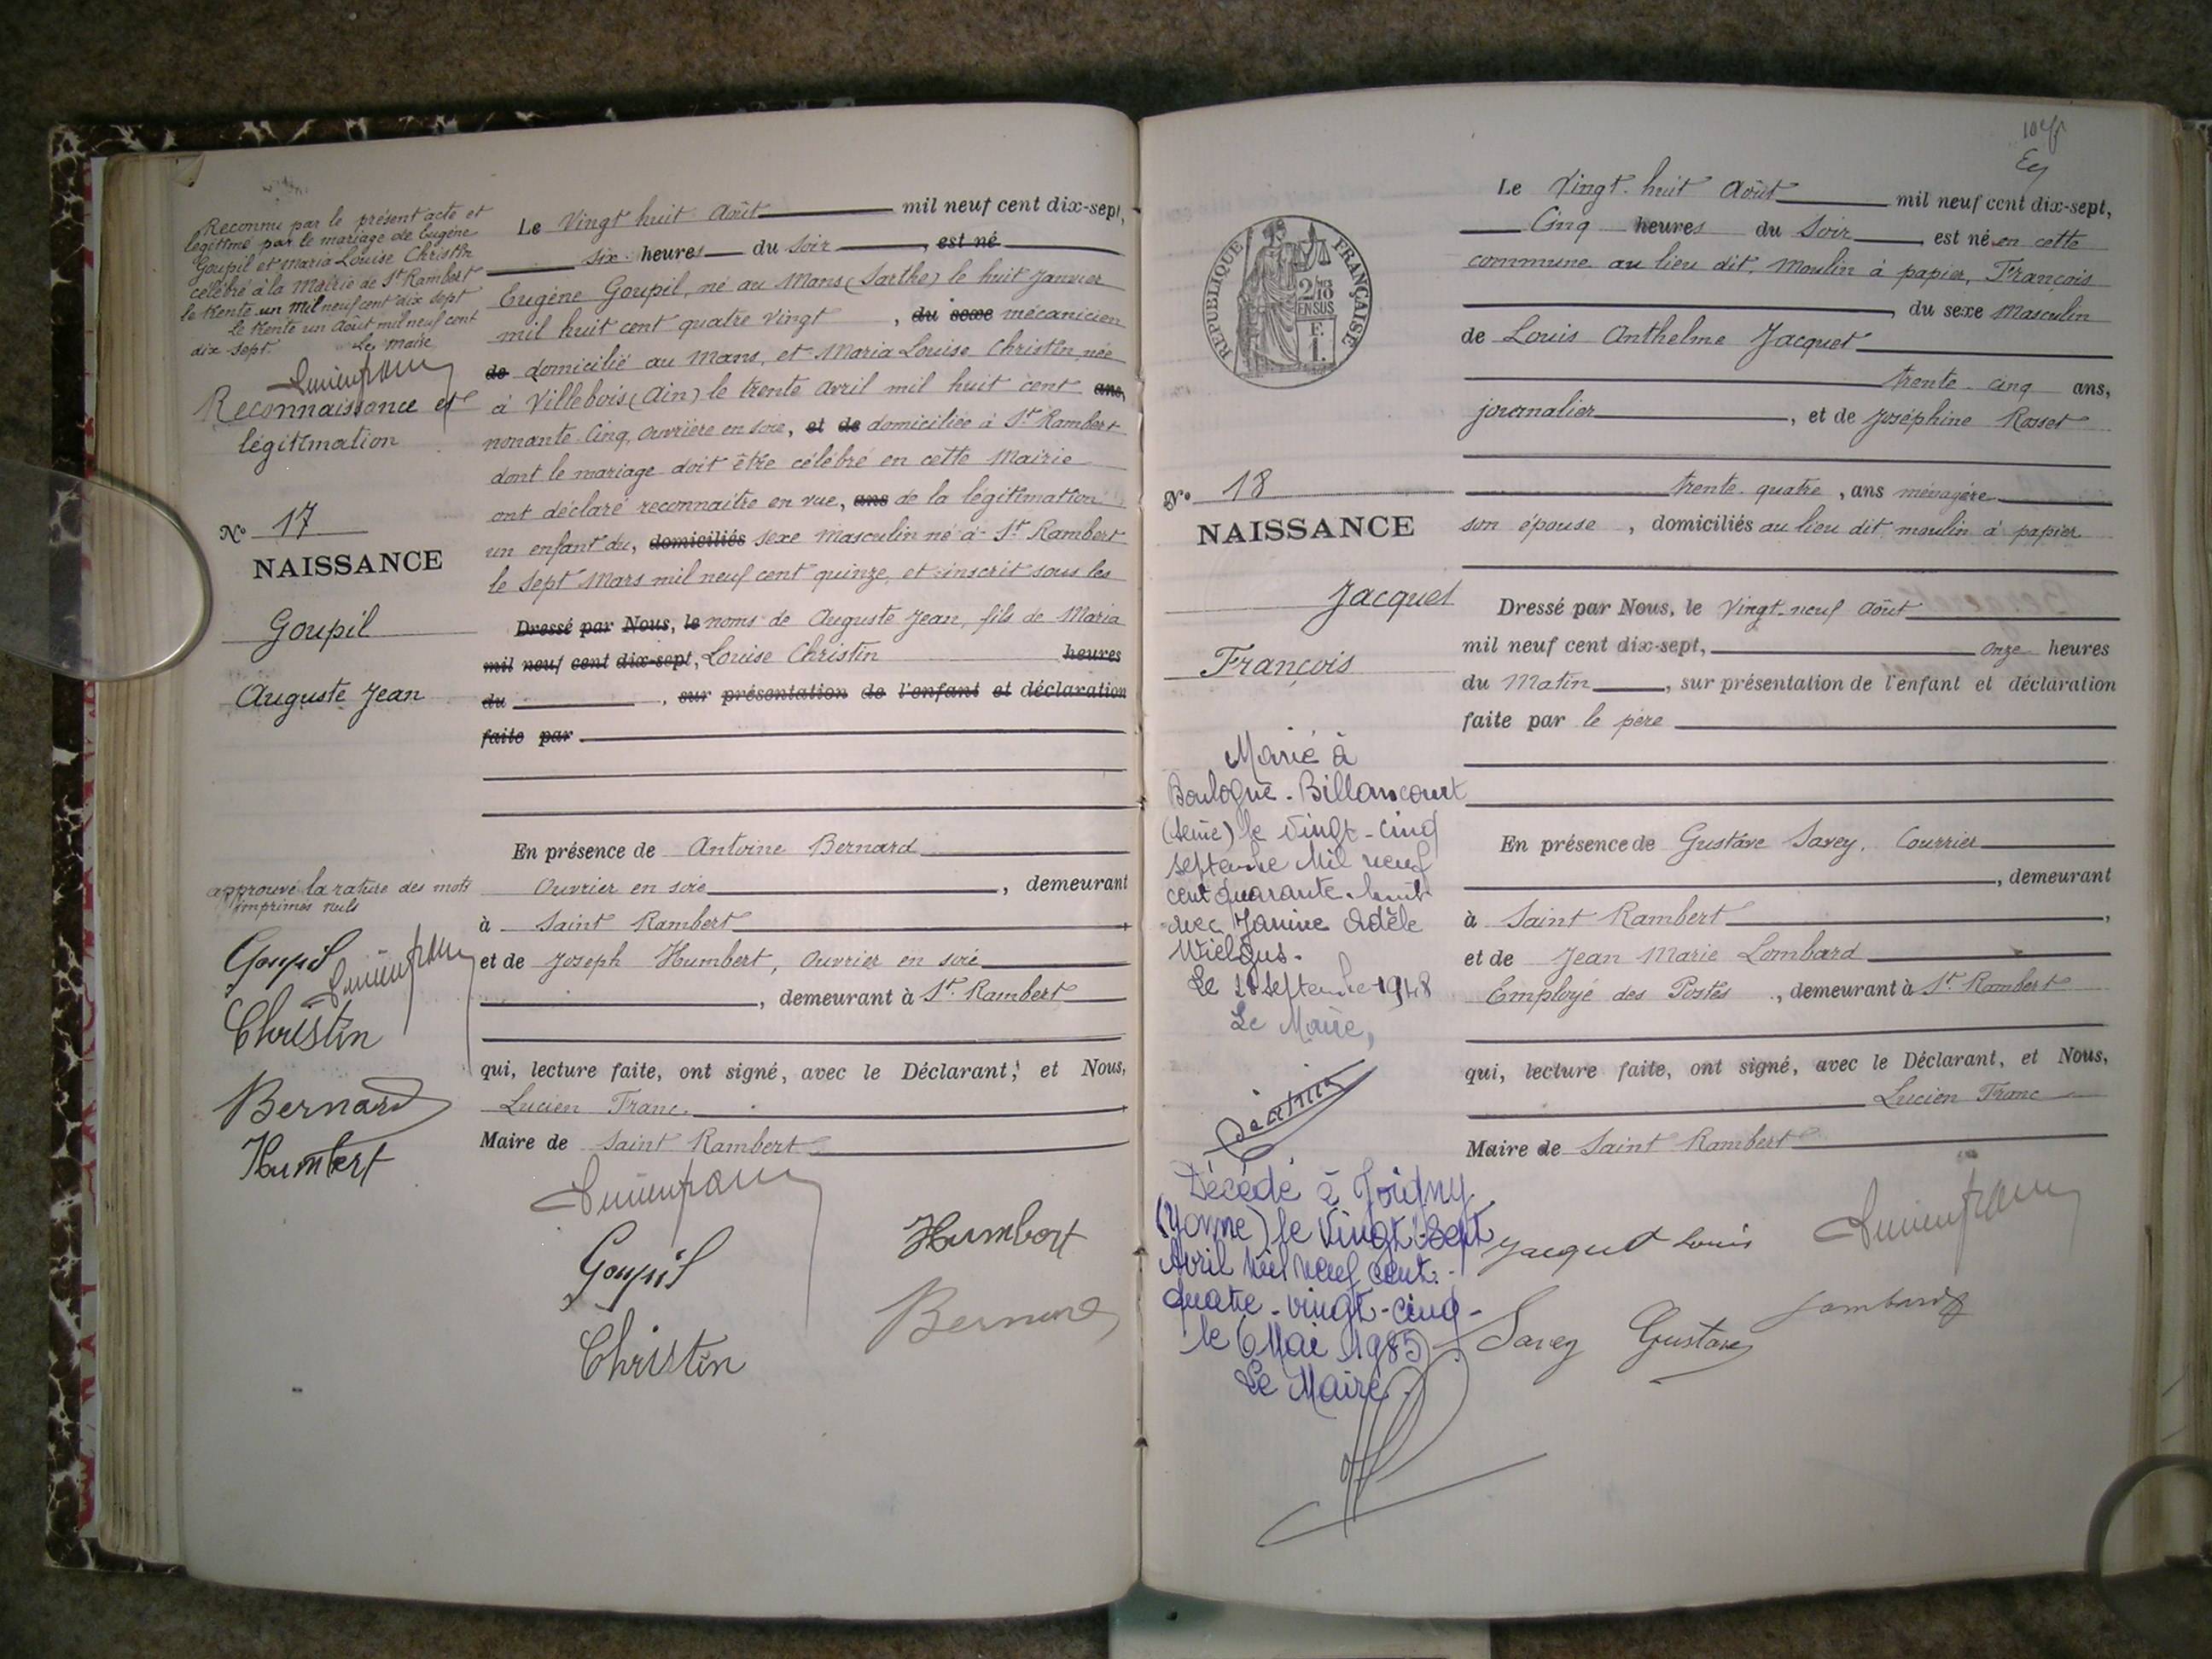 Reconnu par le présent acte et
légitimé par le mariage de Eugène
Goupil et Maria Louise Christin
célébré à la Mairie de St Rambert
le trente un Mil neuf cent dix sept
le trente un Août mil neuf cent
dix sept. Le maire
Reconnaissance et
légitimation
No 17
NAISSANCE
Goupil
Auguste Jean
approuvé la rature des mots
imprimés nuls
Goupil
Christin
Bernard
Humbert
Le Vingt huit Août mil neuf cent dix-sept,
six heures du soir, est né
Eugène Goupil, né au Mans (Sarthe) le huit Janvier
mil huit cent quatre vingt, du sexe mécanicien
de domicilié au Mans, et Maria Louise Christin née
à Villebois (Ain) le trente avril mil huit cent ans,
nonante cinq, ouvrière en soie, et de domiciliée à St Rambert
dont le mariage doit être célébré en cette Mairie
ont déclaré reconnaître en vue, ans de la légitimation
un enfant du, domiciliés sexe Masculin né à St Rambert
le sept Mars mil neuf cent quinze, et inscrit sous les
Dressé par Nous, le noms de Auguste Jean, fils de Maria
mil neuf cent dix-sept, Louise Christin heures
du , sur présentation de l'enfant et déclaration
faite par
En présence de Antoine Bernard
Ouvrier en soie, demeurant
à Saint Rambert
et de Joseph Humbert, Ouvrier en soie
, demeurant à St. Rambert
qui, lecture faite, ont signé, avec le Déclarant, et Nous,
Lucien Franc.
Maire de Saint Rambert
Goupil
Humbert
Bernard
Christin
RÉPUBLIQUE FRANÇAISE
2/10
EN SUS
F.
1.
No 18
NAISSANCE
Jacquet
François
Marié à
Boulogne-Billancourt
(Seine) le vingt-cinq
septembre Mil neuf
cent quarante-huit
avec Janine Adèle
Wielgus.
Le 28 septembre 1948
Le Maire,
Décédé à Joigny
(Yonne) le vingt-sept
Avril mil neuf cent-
quatre-vingt-cinq-
le 6 Mai 1985
Le Maire.
Le Vingt-huit Août mil neuf cent dix-sept,
Cinq heures du Soir, est né en cette
commune au lieu dit, moulin à papier, François
, du sexe Masculin
de Louis Anthelme Jacquet
trente-cinq ans,
journalier, et de Joséphine Rosset
trente-quatre, ans ménagère
son épouse, domiciliés au lieu dit moulin à papier
Dressé par Nous, le Vingt-neuf Août
mil neuf cent dix-sept, onze heures
du Matin, sur présentation de l'enfant et déclaration
faite par le père
En présence de Gustave Savey, Courrier
, demeurant
à Saint Rambert,
et de Jean Marie Lombard
Employé des Postes, demeurant à St. Rambert
qui, lecture faite, ont signé, avec le Déclarant, et Nous,
Lucien Franc
Maire de Saint Rambert
Jacquet Louis
Lombard
Savey Gustave